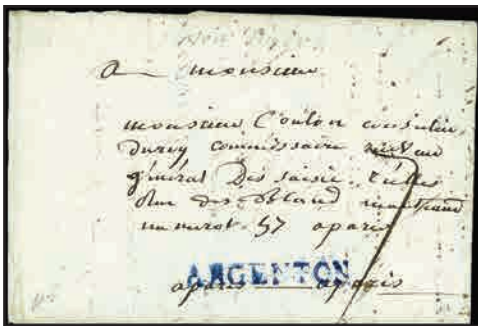 a monsieur
monsieur Coulon conseiller
du roy commissaire
général des saisie réelles
rue des blanc manteaux
numero 57 a paris
ARGENTON
a paris a paris